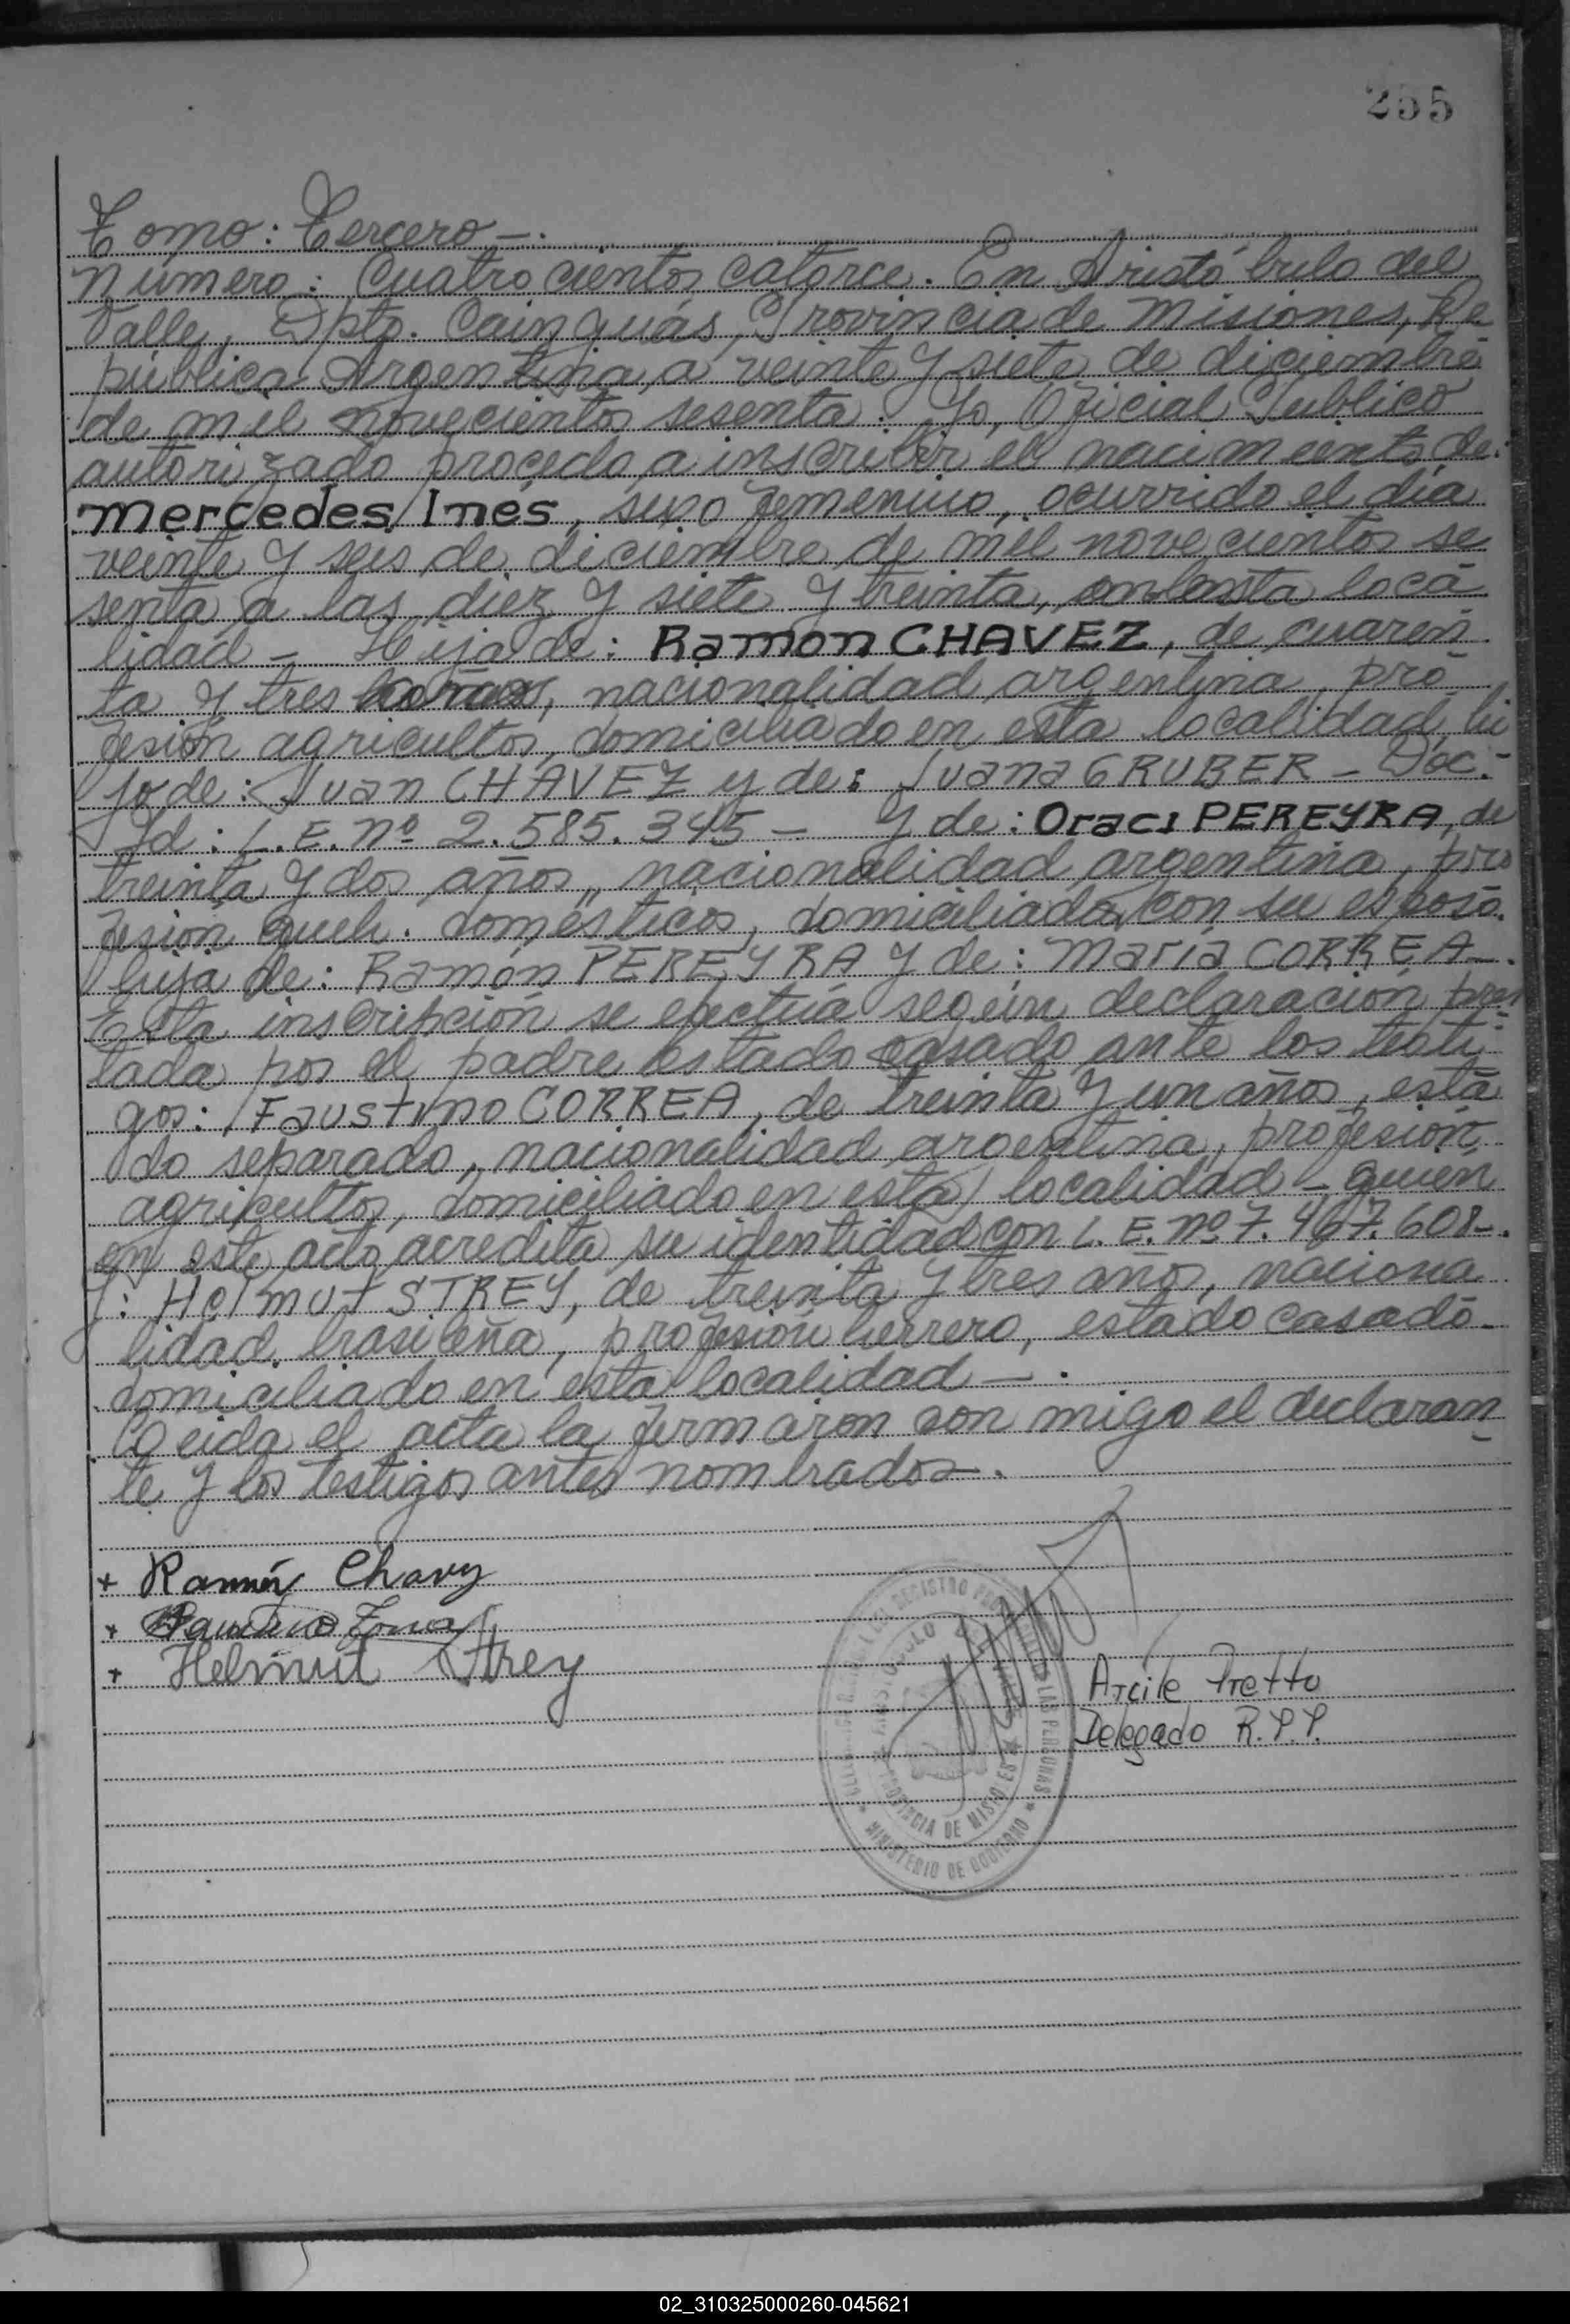 255
Tomo: Tercero -.
Número: Cuatrocientos catorce. En Aristóbulo del
Valle, Dpto. Cainguás, Provincia de Misiones, Re
pública Argentina, a veinte y siete de diciembre
de mil novecientos sesenta. Yo, Oficial Público
autorizado procedo a inscribir el nacimiento de:
Mercedes Inés, sexo femenino, ocurrido el día
veinte y seis de diciembre de mil novecientos se
senta a las diez y siete y treinta, en esta loca
lidad - Hija de: Ramon CHAVEZ, de cuaren
ta y tres años, nacionalidad argentina, pro
fesión agricultor, domiciliado en esta localidad, hi
jo de: Juan CHAVEZ y de: Juana GRUBER - Doc.-
Id: L.E. nº 2.585.345 - Y de: Oraci PEREYRA, de
treinta y dos años, nacionalidad argentina, pro
fesion queh. domésticos, domiciliada con su esposo.
hija de: Ramón PEREYRA y de: María CORREA -.
Esta inscripción se efectúa según declaración pres
tada por el padre estado casado ante los testi-
gos: Faustino CORREA, de treinta y un años, esta
do separado, nacionalidad argentina, profesión
agricultor, domiciliado en esta localidad - quien
en este acto acredita su identidad con L.E. nº 7.467.608-.
Y: Helmut STREY, de treinta y tres años, naciona
lidad brasileña, profesión herrero, estado casado-
domiciliado en esta localidad - .
Leida el acta la firmaron con migo el declaran
te y los testigos antes nombrados-.
+ Ramón Chavez
+ Faustino
+ Helmut Strey
Arcile Pretto
Delegado R.P.P.
REGISTRO PROVINCIAL DE LAS PERSONAS
PROVINCIA DE MISIONES
MINISTERIO DE GOBIERNO
02_310325000260-045621